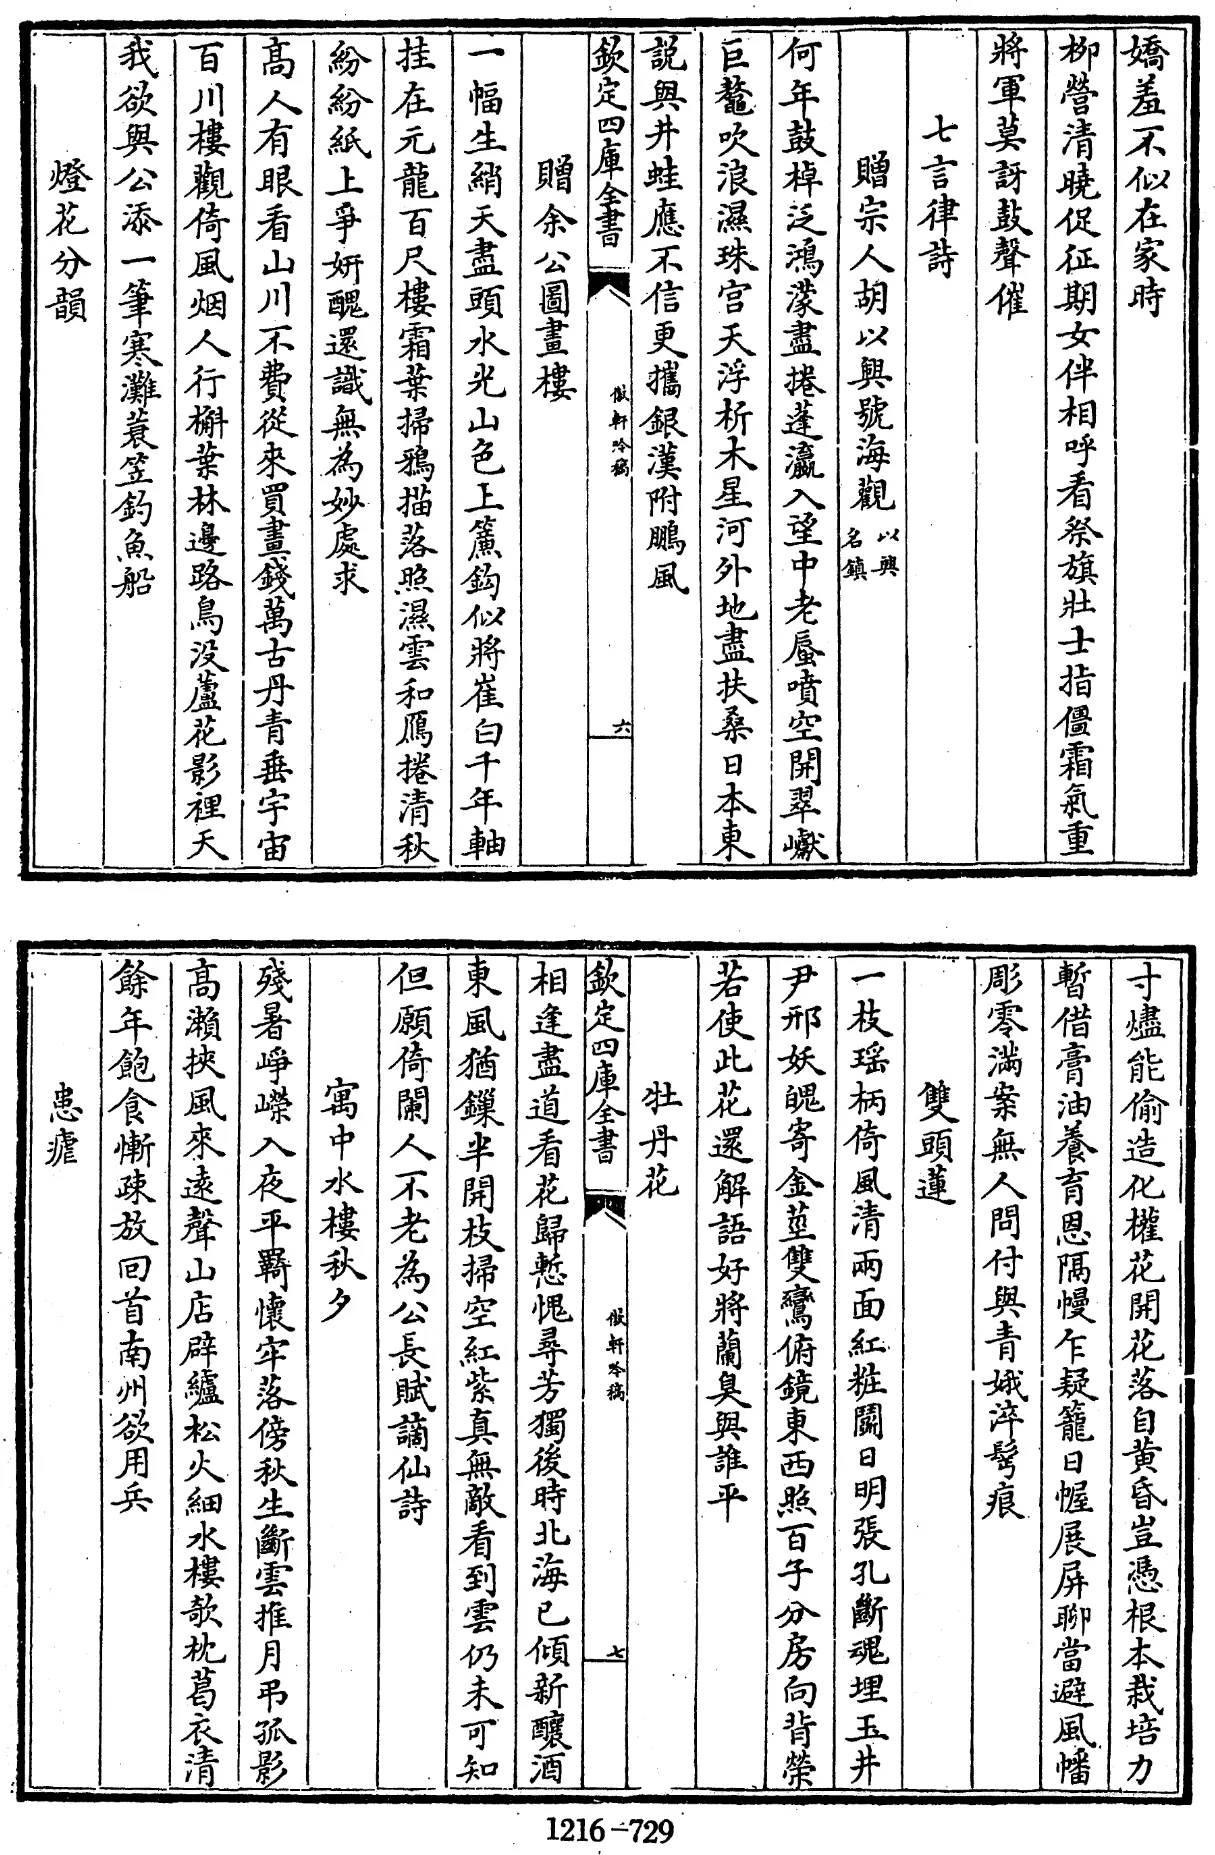 嬌羞不似在家時
柳營清曉促征期女伴相呼看祭旗壯士指僵霜氣重
將軍莫訝鼓聲催
七言律詩
贈宗人胡以興號海觀以興名鎮
何年鼓棹泛鴻濛盡捲蓬瀛入望中老蜃噴空開翠巘
巨鼇吹浪濕珠宫天浮析木星河外地盡扶桑日本東
説與井蛙應不信更攜銀漢附鵬風
欽定四庫全書
傲軒吟稿
六
贈余公圖畫樓
一幅生綃天盡頭水光山色上簾鈎似將崔白千年軸
挂在元龍百尺樓霜葉掃鴉描落照濕雲和鴈捲清秋
紛紛紙上爭妍醜還識無為妙處求
髙人有眼看山川不費從來買畫錢萬古丹青垂宇宙
百川樓觀倚風烟人行槲葉林邊路鳥没蘆花影裡天
我欲與公添一筆寒灘蓑笠釣魚船
燈花分韻
寸燼能偷造化權花開花落自黄昏豈憑根本栽培力
暫借膏油養育恩隔幔乍疑籠日幄展屏聊當避風幡
彫零滿案無人問付與青娥淬髩痕
雙頭蓮
一枝瑶柄倚風清兩面紅粧鬭日明張孔斷魂埋玉井
尹邢妖魄寄金莖雙鸞俯鏡東西照百子分房向背榮
若使此花還解語好將蘭臭與誰平
牡丹花
欽定四庫全書
傲軒吟稿
七
相逢盡道看花歸慙愧尋芳獨後時北海已傾新釀酒
東風猶鏁半開枝掃空紅紫真無敵看到雲仍未可知
但願倚闌人不老為公長賦謫仙詩
寓中水樓秋夕
殘暑崢嶸入夜平羇懷牢落傍秋生斷雲推月弔孤影
高瀨挾風來遠聲山店辟纑松火細水樓欹枕葛衣清
餘年飽食慚疎放回首南州欲用兵
患瘧
1216-729